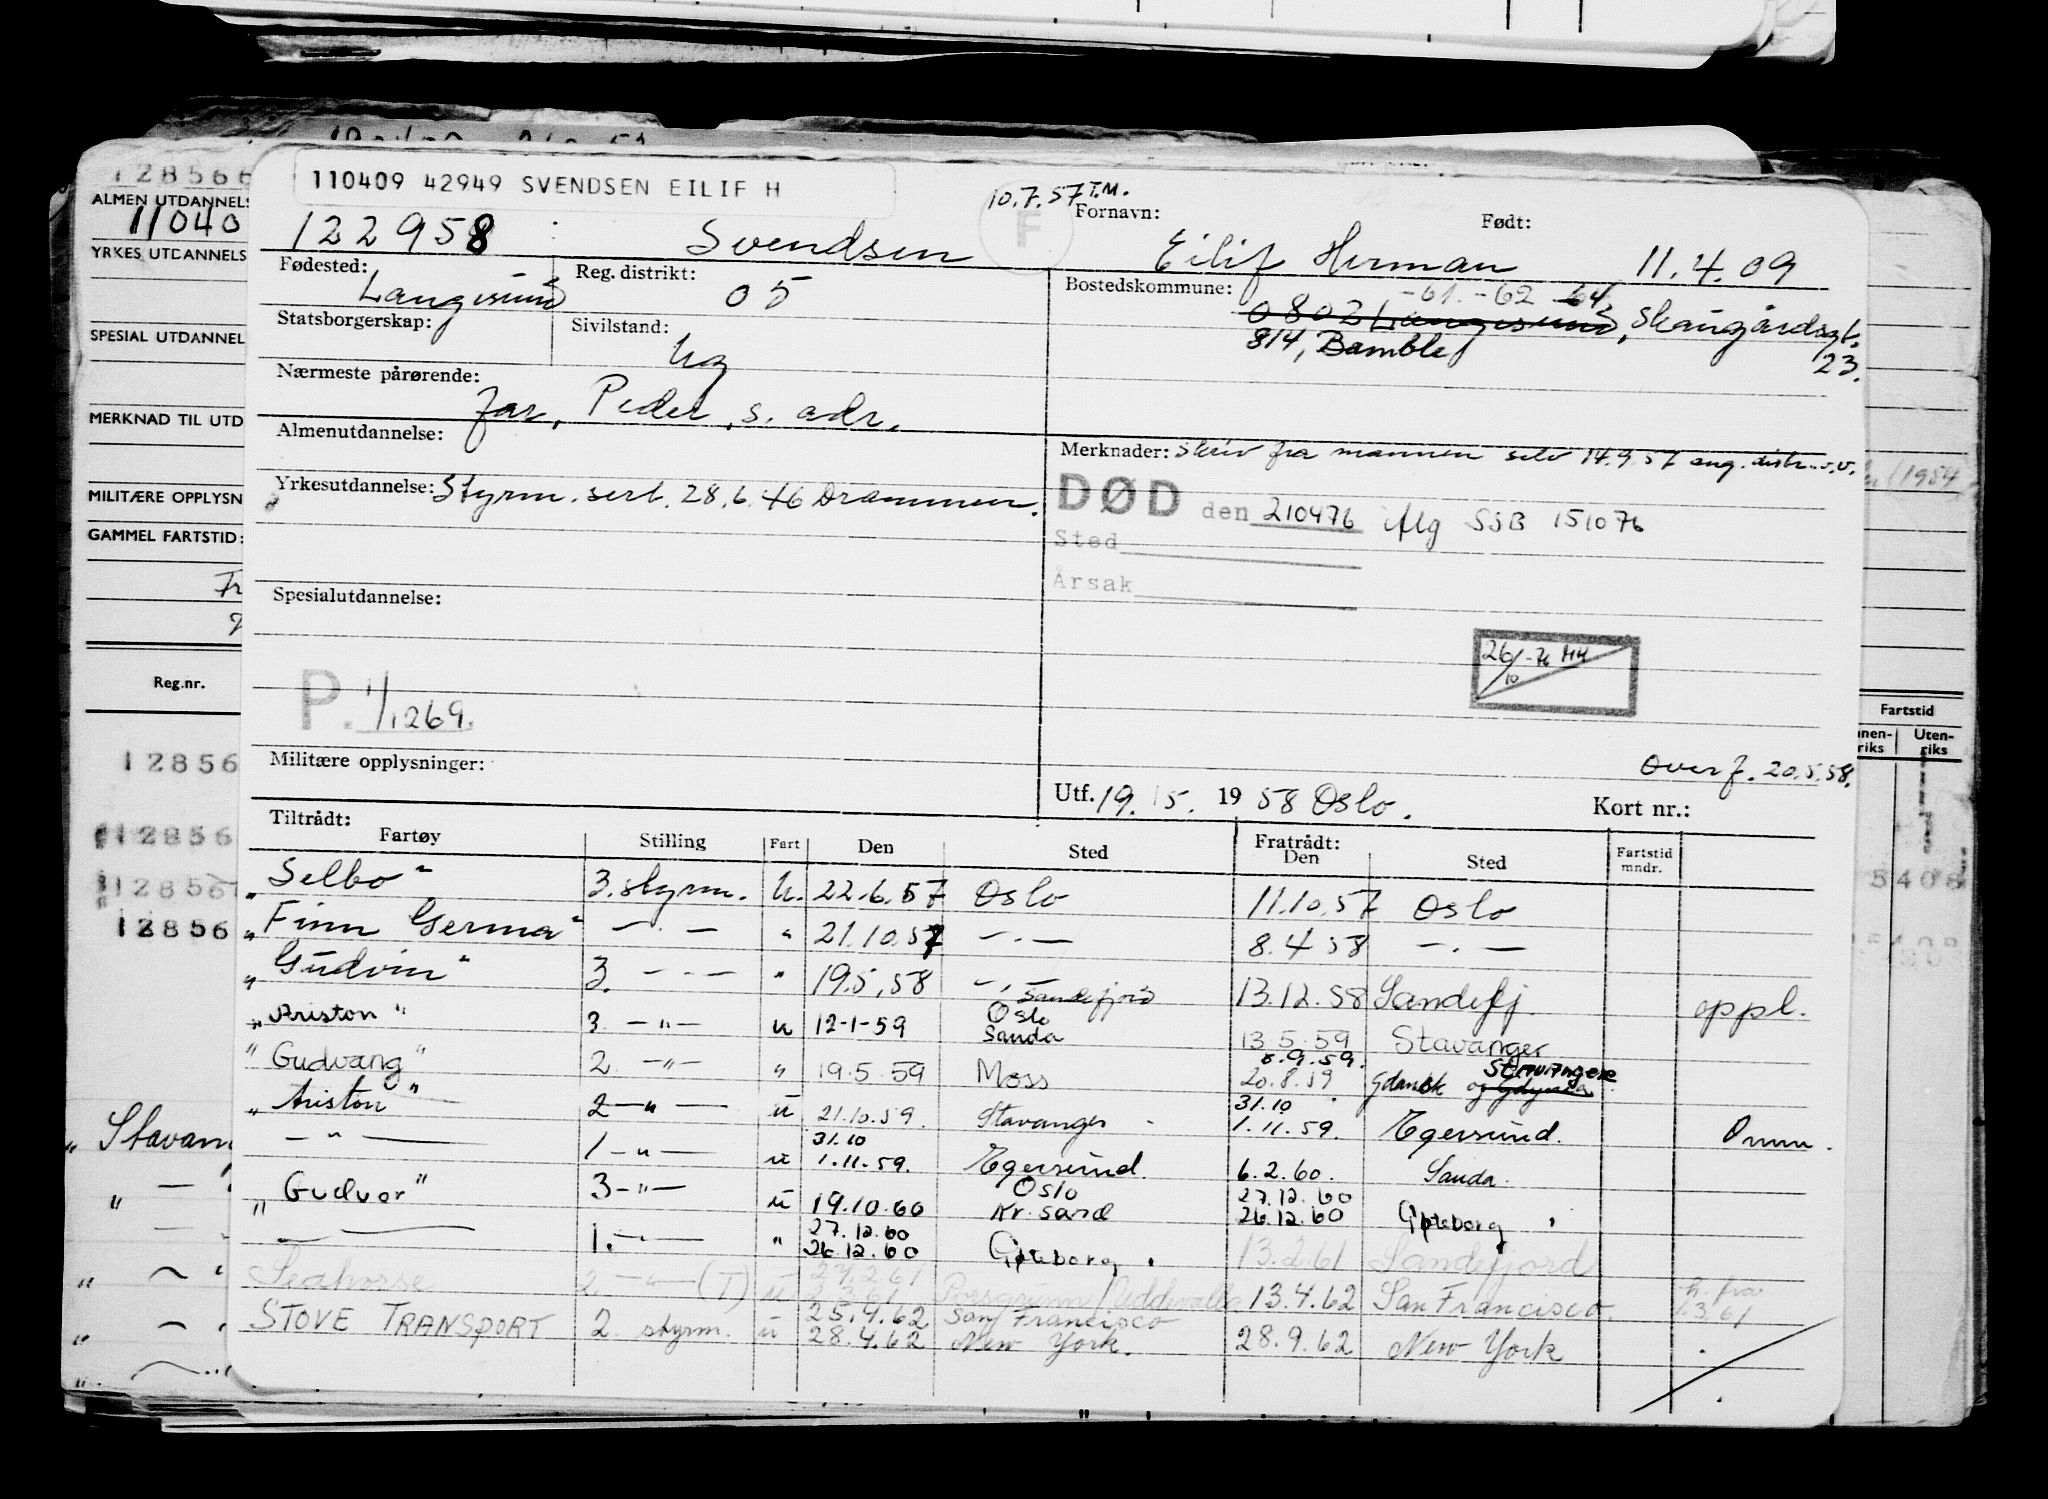 128566
ALMEN UTDANNELS
11040
YRKES UTDANNELS
SPESIAL UTDANNEL
MERKNAD TIL UTD
MILITÆRE OPPLYSN
GAMMEL FARTSTID:
Reg.nr.
12856
12856
12856
12856
"Stavan
110409 42949 SVENDSEN EILIF H
10.7.57 T.M.
F
122958 Svendsen
Fornavn: Eilif Herman
Født: 11.4.09
Fødested: Langesund
Reg. distrikt: 05
Bostedskommune: -61.-62 64
0802 Langesund, Skaugårdsgt. 23.
814, Bamble
Statsborgerskap:
Sivilstand: ug
Nærmeste pårørende: far, Peder, s. adr.
Almenutdannelse:
Merknader: Skriv fra mannen selv 14.9.57 ang. distr. v.v.
Yrkesutdannelse: Styrm. sert. 28.6.46 Drammen.
DØD den 210476 iflg SJB 151076
Sted
Årsak
Spesialutdannelse:
26/10-76
P. 1/1269.
Militære opplysninger:
Overf. 20.5.58.
Utf. 19.5. 1958 Oslo.
Kort nr.:
Tiltrådt:
Fartøy Stilling Fart Den Sted Fratrådt: Den Sted Fartstid mndr.
"Selbo" 3. styrm. u. 22.6.57 Oslo 11.10.57 Oslo
"Finn Germa" —.— " 21.10.57 —.— 8.4.58 —.—
"Gudvin" 3. —.— " 19.5.58 —.— Sandefjord 13.12.58 Sandefj. oppl.
"Ariston" 3. —"— u 12-1-59 Oslo Sanda 13.5.59 Stavanger
"Gudvang" 2. —"— " 19.5.59 Moss 8.9.59. 20.8.59 Gdansk og Gdynia Stavanger
"Ariston" 2 —"— u 21.10.59. Stavanger 31.10 1.11.59. Egersund. Omm.
—"— 1 —"— u 31.10 1.11.59. Egersund. 6.2.60. Sauda.
"Gudvor" 3 —"— u 19.10.60 Oslo Kr. sand 27.12.60 26.12.60 Gøteborg
—"— 1. —"— " 27.12.60 26.12.60 Gøteborg. 13.2.61 Sandefjord
Seahorse 2. —"— (T) u 27.2.61 1.3.61 Porsgrunn / Uddevalla 13.4.62 San Francisco. h. fra 1.3.61
STOVE TRANSPORT 2. styrm. u 25.4.62 28.4.62 San Francisco New York. 28.9.62 New York
(1954
Fartstid
nnen-riks Uten-riks
5408